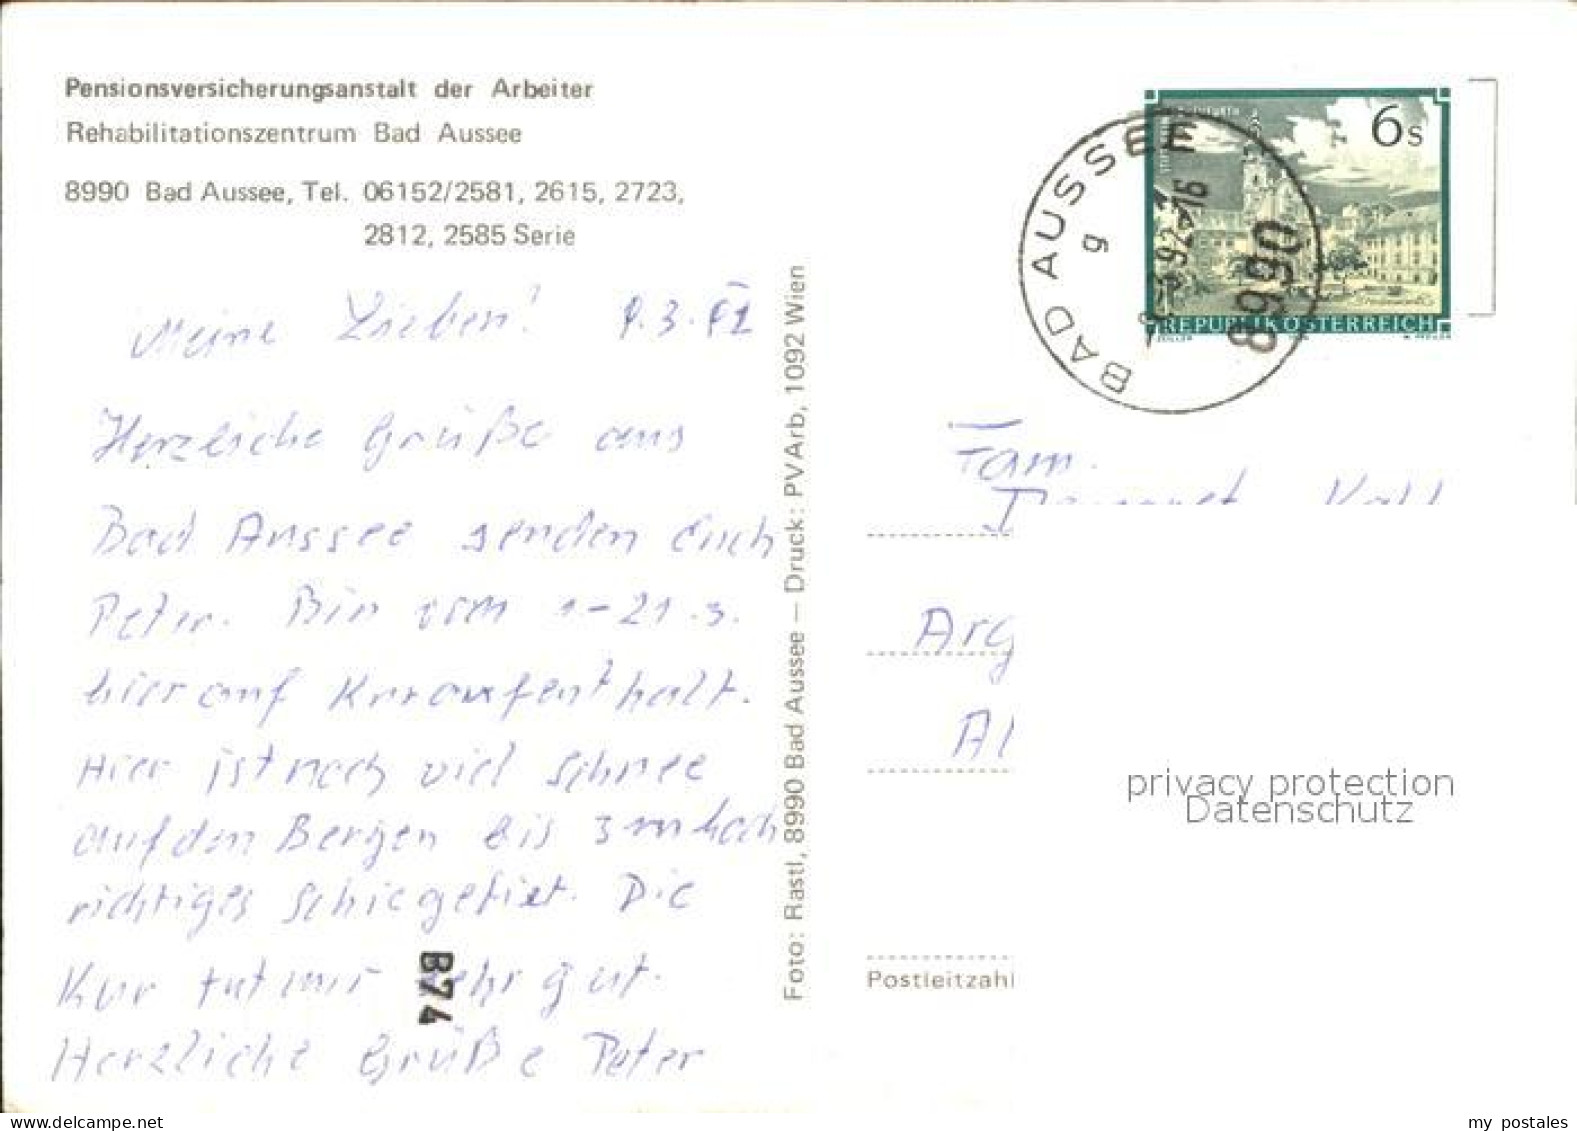 Pensionsversicherungsanstalt der Arbeiter
Rehabilitationszentrum Bad Aussee
8990 Bad Aussee, Tel. 06152/2581, 2615, 2723,
2812, 2585 Serie
Meine Lieben! 9.3.92
Herzliche Grüße aus
Bad Aussee senden Euch
Peter. Bin vom 1-21.3.
hier auf Kuraufenthalt.
Hier ist noch viel Schnee
auf den Bergen bis 3 m hoch
richtiges Schigebiet. Die
Kur tut mir sehr gut.
Herzliche Grüße Peter
B74
Foto: Rastl, 8990 Bad Aussee — Druck: PVArb, 1092 Wien
6s
REPUBLIK ÖSTERREICH
BAD AUSSEE
g
92-16
8990
Fam.
Arg
Al
Postleitzahl
privacy protection
Datenschutz
my postales